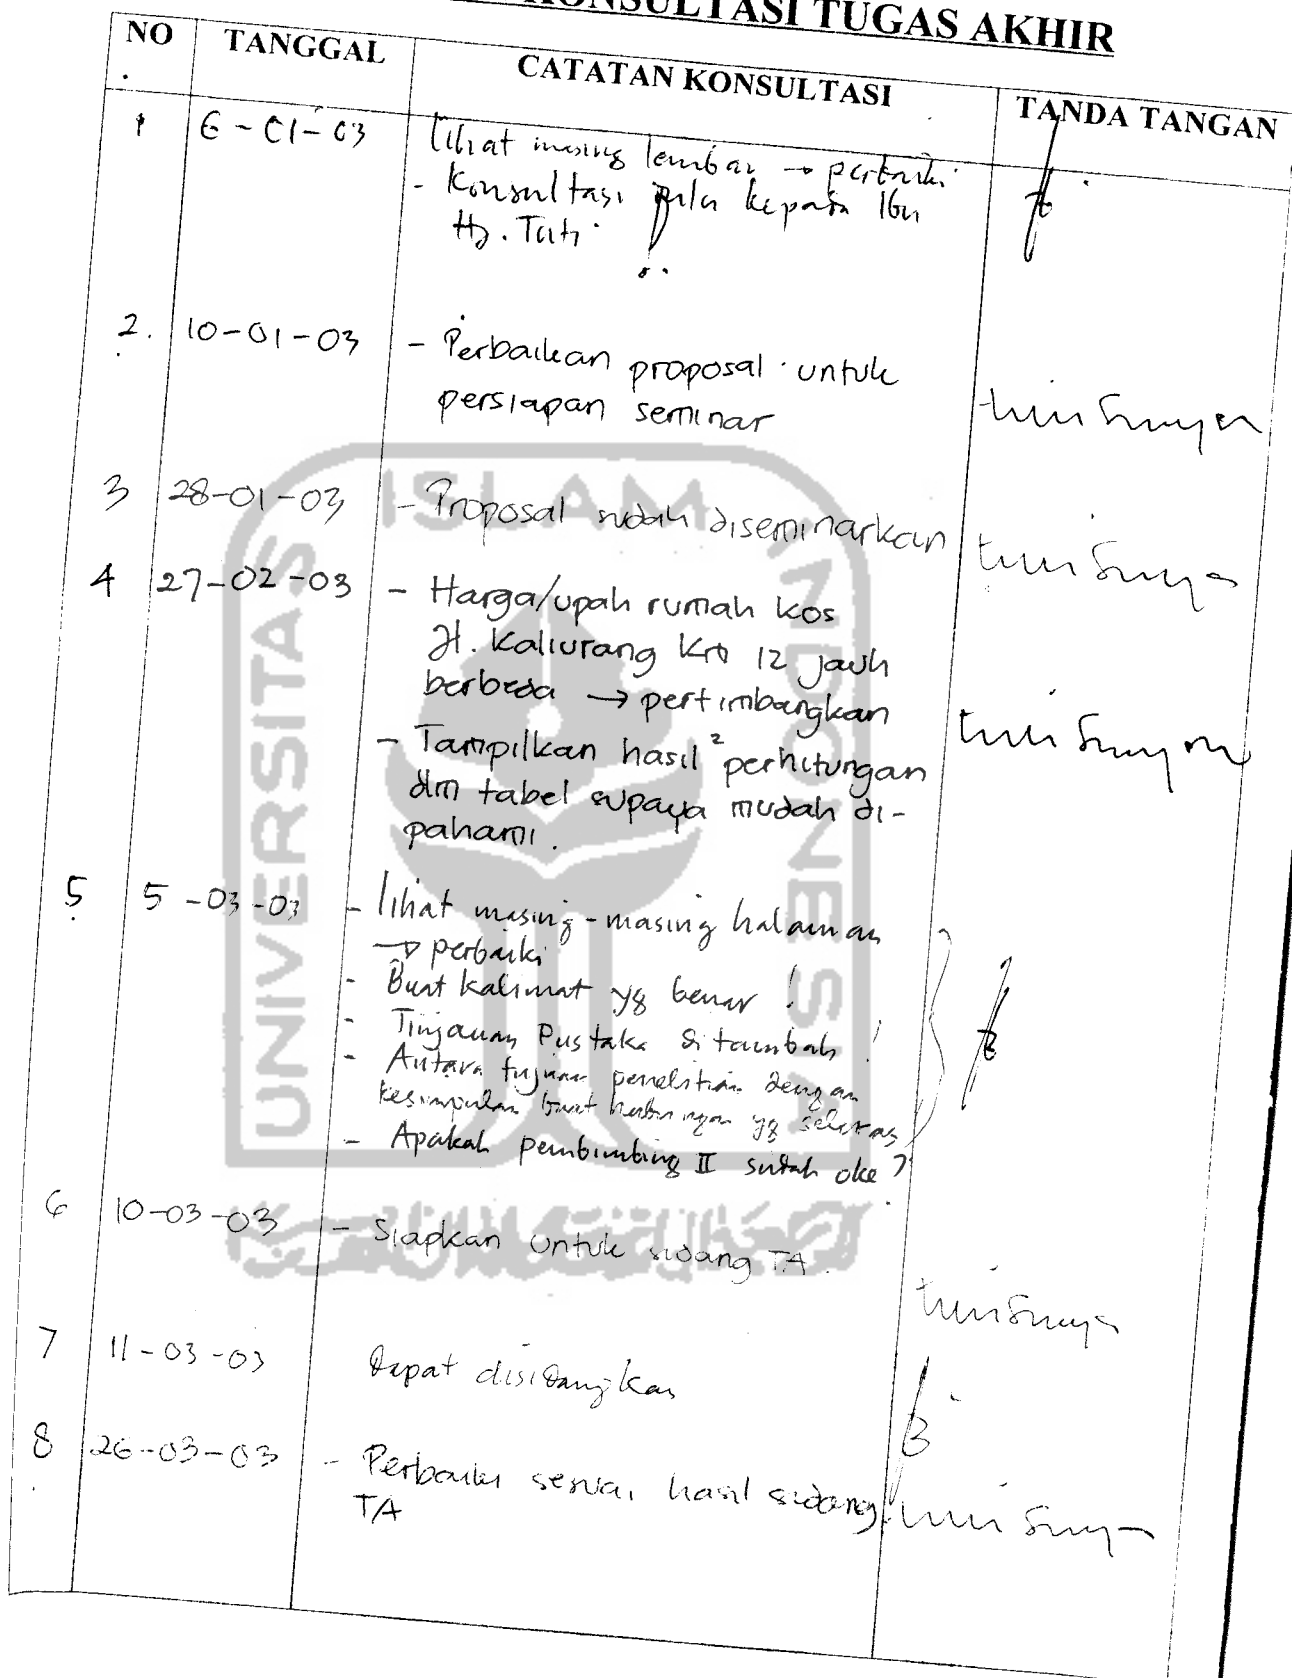 KONSULTASI TUGAS AKHIR
NO. TANGGAL CATATAN KONSULTASI TANDA TANGAN
1 6-01-03 lihat masing lembar → perbaiki
- Konsultasi pula kepada Ibu
Hj. Tuti
2. 10-01-03 - Perbaikan proposal untuk
persiapan seminar
3 28-01-03 - Proposal sudah diseminarkan
4 27-02-03 - Harga/upah rumah kos
Jl. Kaliurang Km 12 jauh
berbeda → pertimbangkan
- Tampilkan hasil² perhitungan
dlm tabel supaya mudah di-
pahami.
5 5-03-03 - lihat masing-masing halaman
→ perbaiki
- Buat kalimat yg benar!
- Tinjauan Pustaka ditambah!
- Antara tujuan penelitian dengan
kesimpulan buat hubungan yg selaras
- Apakah pembimbing II sudah oke?
6 10-03-03 - Siapkan untuk sidang TA.
7 11-03-03 dapat disidangkan
8 26-03-03 - Perbaiki sesuai hasil sidang
TA
UNIVERSITAS ISLAM INDONESIA